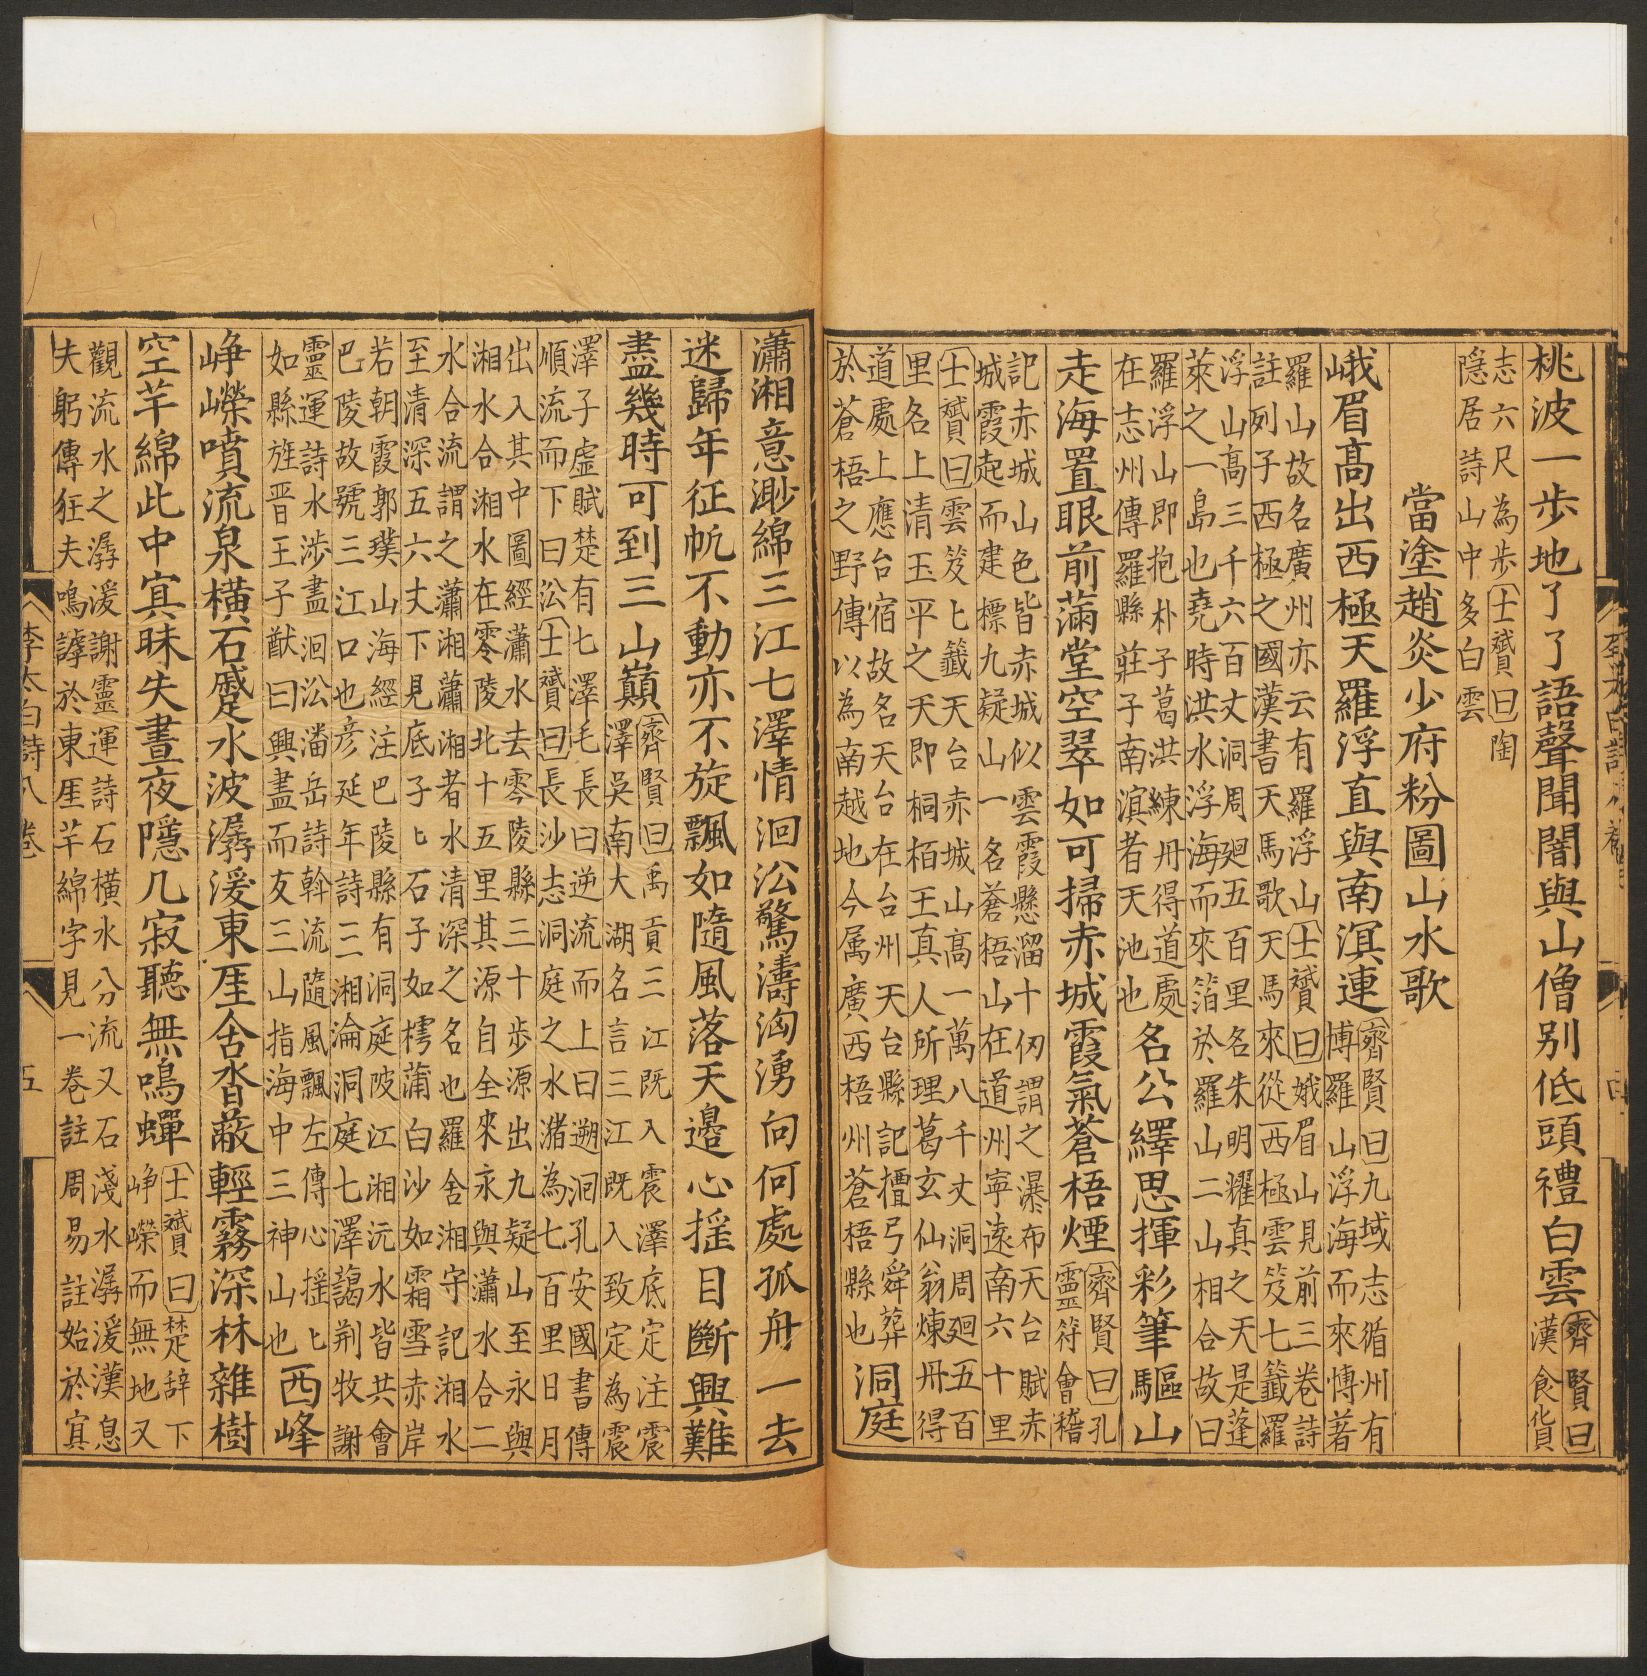 桃波一步地了了語聲聞闇與山僧别低頭禮白雲齊賢曰漢食貨
志六尺為步士贇曰陶
隠居詩山中多白雲
當塗趙炎少府粉圖山水歌
峨眉髙出西極天羅浮直與南溟連齊賢曰九域志循州有
博羅山浮海而來博著
羅山故名廣州亦云有羅浮山士贇曰峨眉山見前三卷詩
註列子西極之國漢書天馬歌天馬來從西極雲笈七籖羅
浮山高三千六百丈洞周廻五百里名朱明耀真之天是蓬
萊之一島也堯時洪水浮海而來箔於羅山二山相合故曰
羅浮山即抱朴子葛洪練丹得道處
在志州傳羅縣莊子南溟者天池也名公繹思揮彩筆驅山
走海置眼前滿堂空翠如可掃赤城霞氣蒼梧煙齊賢曰孔
靈符會稽
記赤城山色皆赤城似雲霞懸溜十仞謂之瀑布天台賦赤
城霞起而建標九疑山一名蒼梧山在道州寧遠南六十里
士贇曰雲笈七籖天台赤城山高一萬八千丈洞周廻五百
里各上清玉平之天即桐栢王真人所理葛玄仙翁煉丹得
道處上應台宿故名天台在台州天台縣記檀弓舜葬
於蒼梧之野傳以為南越地今属廣西梧州蒼梧縣也洞庭
瀟湘意渺綿三江七澤情洄㳂驚濤洶湧向何處孤舟一去
迷歸年征帆不動亦不旋飄如隨風落天邉心揺目斷興難
盡幾時可到三山巔齊賢曰禹貢三江既入震澤底定注震
澤吳南大湖名言三江既入致定為震
澤子虚賦楚有七澤毛長曰逆流而上曰遡洄孔安國書傳
順流而下曰㳂士贇曰長沙志洞庭之水潴為七百里日月
出入其中圖經瀟水去零陵縣三十步源出九疑山至永與
湘水合湘水在零陵北十五里其源自全來永與瀟水合二
水合流謂之瀟湘瀟湘者水清深之名也羅含湘守記湘水
至清深五六丈下見底子匕石子如樗蒲白沙如霜雪赤岸
若朝霞郭璞山海經注巴陵縣有洞庭陂江湘沅水皆共會
巴陵故號三江口也彦延年詩三湘淪洞庭七澤藹荆牧謝
靈運詩水涉盡洄㳂潘岳詩斡流隨風飄左傳心揺匕
如縣旌晋王子猷曰興盡而友三山指海中三神山也西峰
峥嶸噴流泉横石蹙水波潺湲東厓合沓蔽輕霧深林雜樹
空芊綿此中㝠昧失晝夜隱几寂聽無鳴蟬士贇曰楚辞下
峥嶸而無地又
觀流水之潺湲謝靈運詩石横水分流又石淺水潺湲漢息
夫躬傳狂夫嗚謼於東厓芊綿字見一卷註周易註始於㝠
李太白詩八卷
五